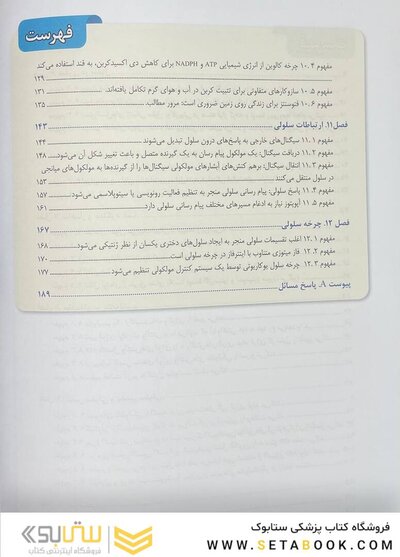 فهرست
مفهوم ۱۰.۴ چرخه کالوین از انرژی شیمیایی ATP و NADPH برای کاهش دی اکسیدکربن، به قند استفاده می‌کند
۱۲۹
مفهوم ۱۰.۵ سازوکارهای متفاوتی برای تثبیت کربن در آب و هوای گرم تکامل یافته‌اند. ۱۳۱
مفهوم ۱۰.۶ فتوسنتز برای زندگی روی زمین ضروری است: مرور مطالب. ۱۳۵
فصل ۱۱. ارتباطات سلولی ۱۴۳
مفهوم ۱۱.۱ سیگنال‌های خارجی به پاسخ‌های درون سلول تبدیل می‌شوند ۱۴۴
مفهوم ۱۱.۲ دریافت سیگنال: یک مولکول پیام رسان به یک گیرنده متصل و باعث تغییر شکل آن می‌شود. ۱۴۸
مفهوم ۱۱.۳ انتقال سیگنال: برهم کنش‌های آبشارهای مولکولی سیگنال‌ها را از گیرنده‌ها به مولکول‌های میانجی
در سلول منتقل می‌کنند ۱۵۳
مفهوم ۱۱.۴ پاسخ سلولی: پیام رسانی سلولی منجر به تنظیم فعالیت رونویسی یا سیتوپلاسمی می‌شود ۱۵۷
مفهوم ۱۱.۵ آپوپتوز نیاز به ادغام مسیرهای مختلف پیام رسانی سلولی دارد ۱۶۱
فصل ۱۲. چرخه سلولی ۱۶۷
مفهوم ۱۲.۱ اغلب تقسیمات سلولی منجر به ایجاد سلول‌های دختری یکسان از نظر ژنتیکی می‌شود. ۱۶۸
مفهوم ۱۲.۲ فاز میتوزی متناوب با اینترفاز در چرخه سلولی است. ۱۷۰
مفهوم ۱۲.۳ چرخه سلول یوکاریوتی توسط یک سیستم کنترل مولکولی تنظیم می‌شود ۱۷۷
پیوست A. پاسخ مسائل ۱۸۹
فروشگاه کتاب پزشکی ستابوک
WWW.SETABOOK.COM
ستابوک
فروشگاه اینترنتی کتاب